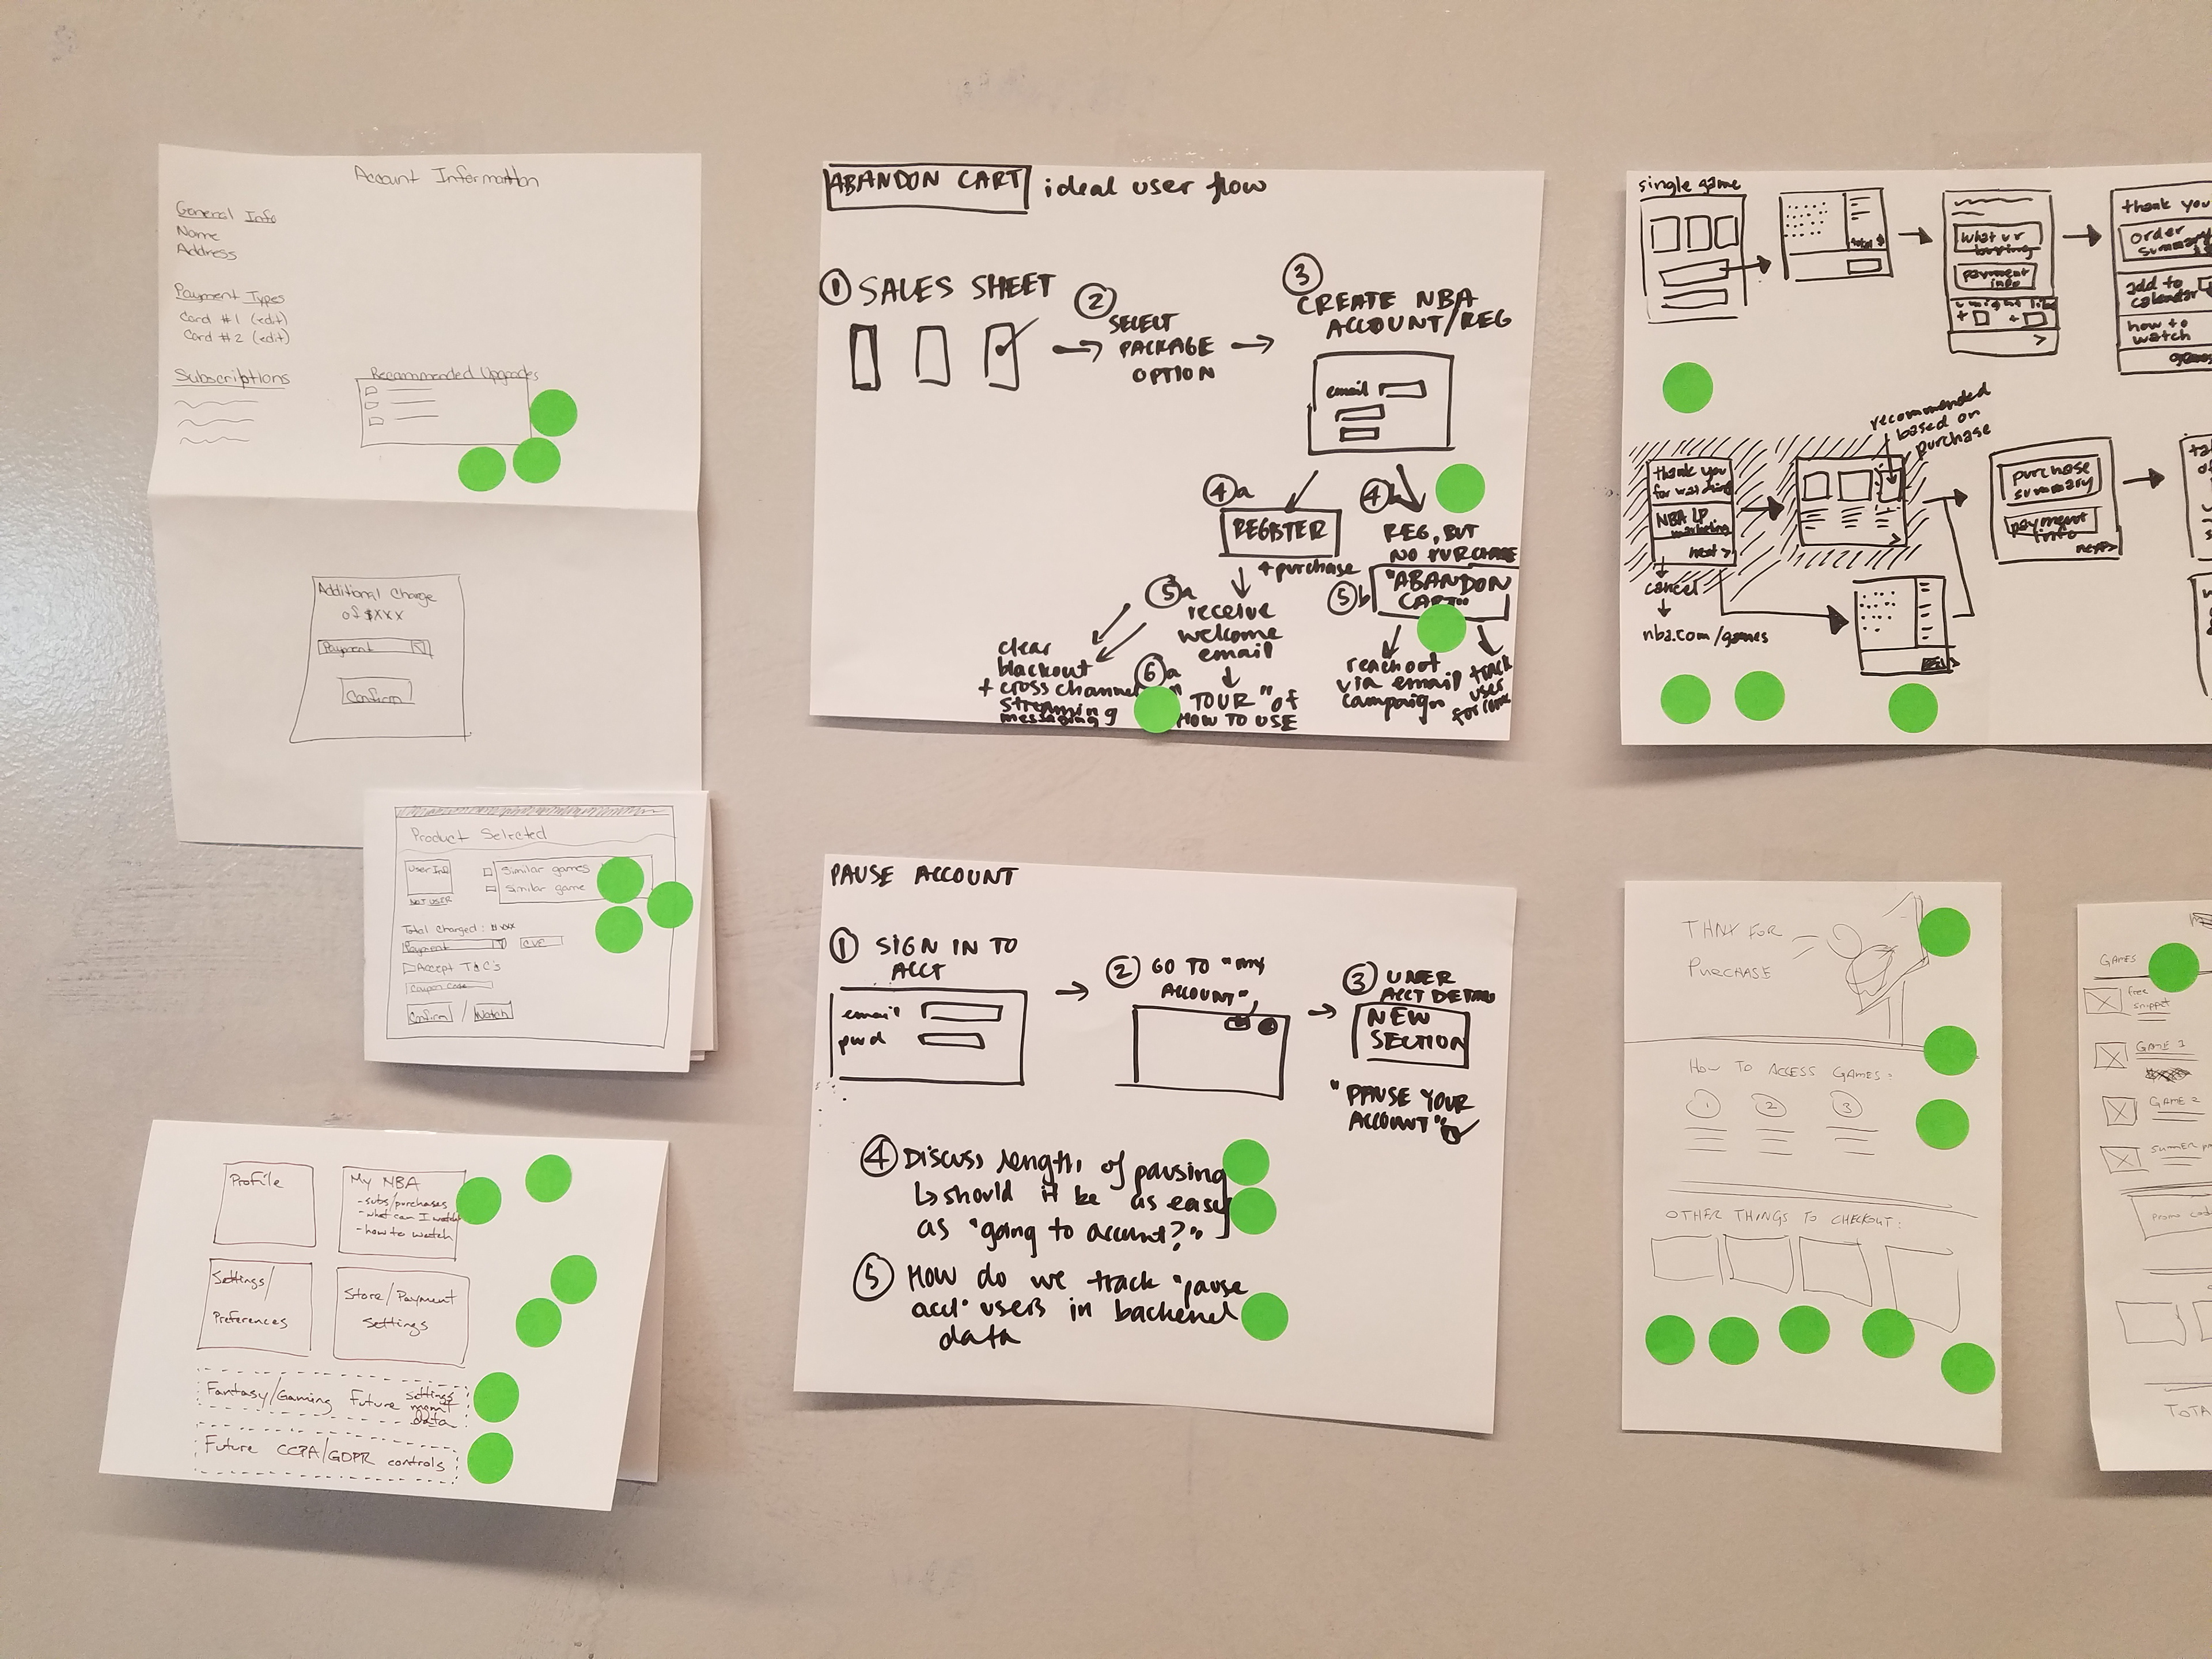 Account Information
General Info
Name
Address
Payment Types
Card #1 (edit)
Card #2 (edit)
Subscriptions
Recommended Upgrades
Additional Charge
of $XXX
Payment
Confirm
Product Selected
User Info
NOT USER
Similar games
Similar game
Total Charged: $XXX
Payment
CVE
Accept T&C's
Coupon Code
Confirm / Watch
Profile
My NBA
- subs/purchases
- what can I watch
- how to watch
Settings/
Preferences
Store/Payment
Settings
Fantasy/Gaming Future settings
mgmt
data
Future CCPA/GDPR controls
ABANDON CART ideal user flow
① SALES SHEET
② SELECT
PACKAGE
OPTION
③
CREATE NBA
ACCOUNT/REG
email
④a
REGISTER
+ purchase
④
REG, BUT
NO PURCHASE
⑤a
receive
welcome
email
clear
blackout
+ cross channel
streaming
messaging
⑥a
"TOUR" of
HOW TO USE
⑤b
"ABANDON
CART"
reachout
via email
campaign
track
user
for
PAUSE ACCOUNT
① SIGN IN TO
ACCT
email
pwd
② GO TO "my
ACCOUNT"
③ USER
ACCT DETAIL
NEW
SECTION
"PAUSE YOUR
ACCOUNT"
④ Discuss length of pausing
↳ should it be as easy
as "going to account?"
⑤ How do we track "pause
acct" users in backend
data
single game
total $
what ur
buying
payment
info
u might like
+ +
>
thank you
order
summary
add to
calendar
how to
watch
recommended
based on
purchase
thank you
for watching
NBA LP
marketing
next >
cancel
nba.com/games
purchase
summary
payment
info
next>
THNX FOR
PURCHASE
HOW TO ACCESS GAMES:
1 2 3
OTHER THINGS TO CHECKOUT:
GAMES
free
snippet
GAME 1
GAME 2
SUMMER
promo
TOTA